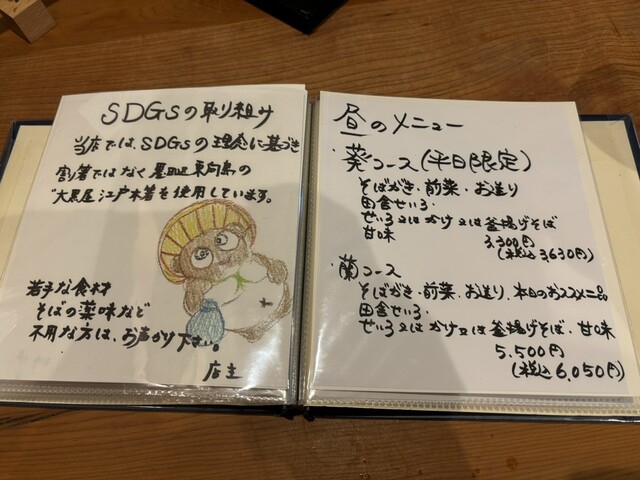 SDGsの取り組み
当店では、SDGsの理念に基づき
割箸ではなく墨田区東向島の
"大黒屋江戸木箸を使用しています。
苦手な食材
そばの薬味など
不用な方は、お声がけ下さい。
店主
昼のメニュー
・葵コース(平日限定)
そばがき・前菜・お造り
田舎せいろ・
せいろ又はかけ又は釜揚げそば
甘味
3,300円
(税込3,630円)
・蘭コース
そばがき・前菜・お造り・本日のおススメ一品
田舎せいろ・
せいろ又はかけ又は釜揚げそば・甘味
5.500円
(税込6,050円)